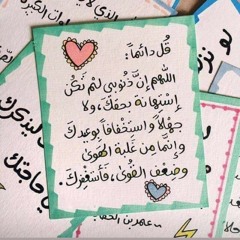 قُل دائماً:
اللهم إنَّ ذنوبي لمْ تكُن
إستهانة بحقك، ولا
جهلاً واستخفافاً بوعيدك
وإنَّما من غلبة الهوى
وضعف القوى، فأستغفرك.
لو نزر
حاجتك